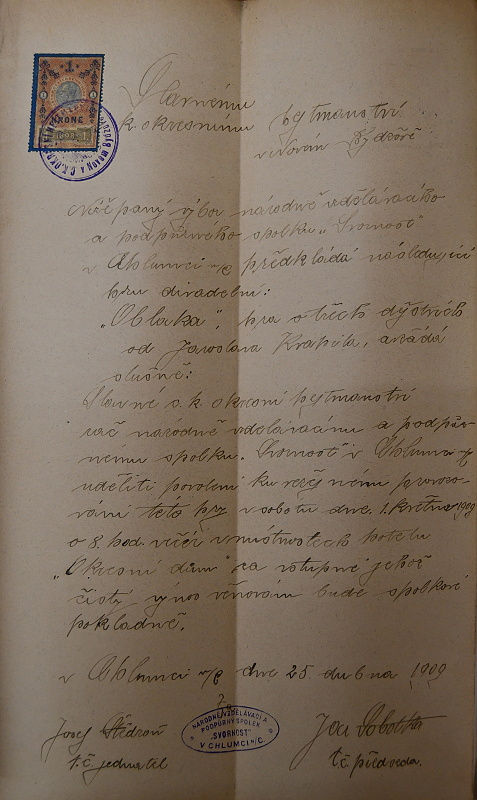 1
KRONE
1898
Slavnému
c. k. okresnímu hejtmanství
v Novém Bydžově
Níže psaný výbor národně vzdělávacího
a podpůrného spolku „Svornost"
v Chlumci n/C předkládá následující
hru divadelní:
„Oblaka", hra o třech dějstvích
od Jaroslava Kvapila, a žádá
slušně:
Slavné c. k. okresní hejtmanství
rač národně vzdělávacímu a podpůr-
nému spolku „Svornost" v Chlumci n/C
uděliti povolení ku veřejnému provozo-
vání této hry v sobotu dne 1. května 1909
o 8. hod. večer v místnostech hotelu
„Okresní dům" za vstupné jehož
čistý výnos věnován bude spolkové
pokladně.
v Chlumci n/C dne 25. dubna 1909
Josef
t. č. jednatel
NÁRODNĚ VZDĚLÁVACÍ A
PODPŮRNÝ SPOLEK
„SVORNOST"
V CHLUMCI N/C.
Jos. Sobotka
t. č. předseda.